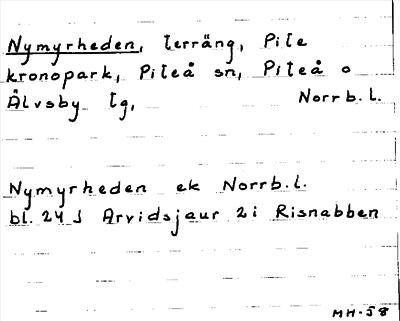 Nymyrheden, terräng, Pite
kronopark, Piteå sn, Piteå o
Älvsby tg, Norrb.l.
Nymyrheden ek Norrb.l.
bl. 24 J Arvidsjaur 2i Risnabben
MH-58